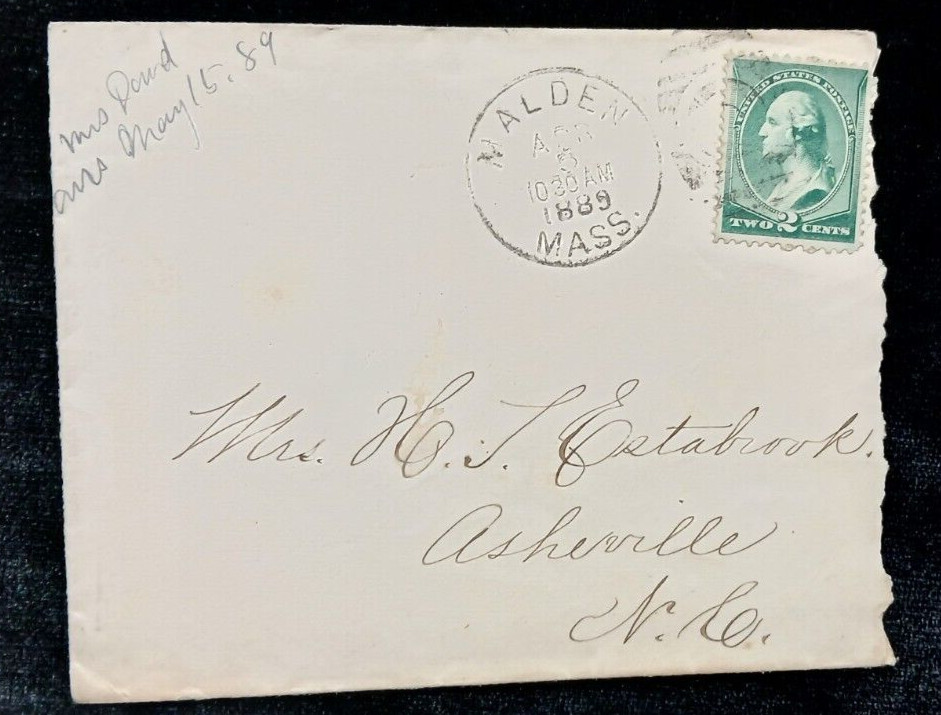 Mrs Dowd
Ans May 15. 89
MALDEN
APR
5
10 30 AM
1889
MASS.
UNITED STATES POSTAGE
TWO 2 CENTS
Mrs. H. S. Estabrook.
Asheville
N. C.